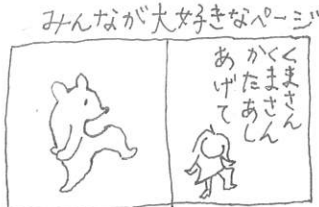 みんなが大好きなページ
くまさん
くまさん
かたあし
あげて